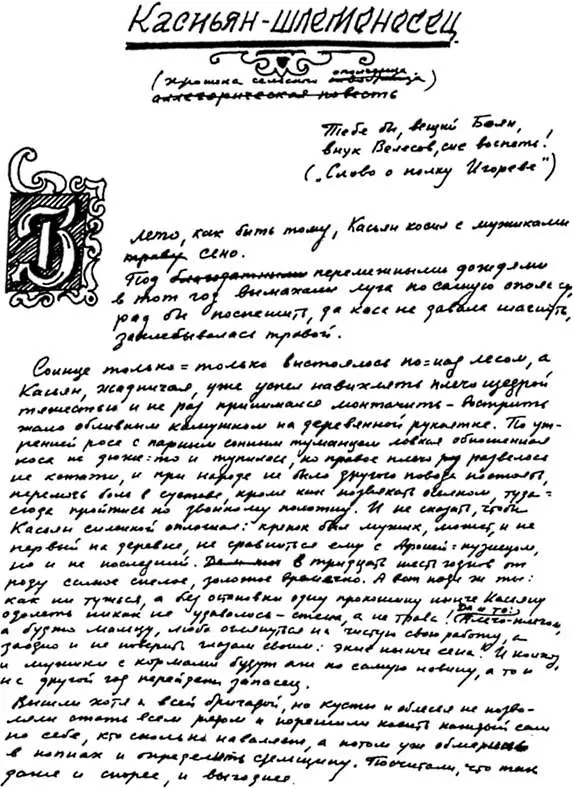 Касьян-шлемоносец
(хроника сельского ополченца)
аллегорическая повесть
Тебе бы, вещий Боян,
внук Велесов, сие воспеть!
("Слово о полку Игореве")
В лето, как быть тому, Касьян косил с мужиками
траву сено.
Под благодатными перемежными дождями
в тот год вымахали луга по самую опояску,
рад бы поспешить, да коса не давала шагнуть,
захлебывалась травой.
Солнце только-только выстоялось по-над лесом, а
Касьян, жадничая, уже успел навихлять плечо щедрой
тяжестью и не раз принимался монтачить - вострить
жало обливным камушком на деревянной рукоятке. По ут-
ренней росе с парным сонным туманцем ловкая обношенная
коса не дюже-то и тупилась, но правое плечо развелось
не кстати, и при народе не было другого повода постоять,
перемочь боль в суставе, кроме как позвякать оселком, туда-
сюда пройтись по звонкому полотну. И не сказать, чтобы
Касьян силенкой оплошал: крепок был мужик, может, и не
первый на деревне, не сравниться ему с Арошей-кузнецом,
но и не последний. в тридцать шесть годив от
роду самое спелое, золотое времечко. А вот поди ж ты:
как ни тужься, а без остановки одну прокошину нынче Касьяну
одолеть никак не удавалось - стена, а не трава! Да и то:
а будто молицу, любо оглянуться на чистую свою работу, а
заодно и не поверить глазам своим: экие нынче сена! И коню,
и мужики с кормами будут аж по самую новину, а то и
и с другой год перейдет запасец.
Вышли хотя и всей бригадой, но кусты и облесья не позво-
ляли стать всем рядом и порешили косить каждый сам
по себе, кто сколько наваляет, а потом уже обмерить
в копнах и определить сдельщину. Посчитали, что так
даже и скорее, и выгоднее.